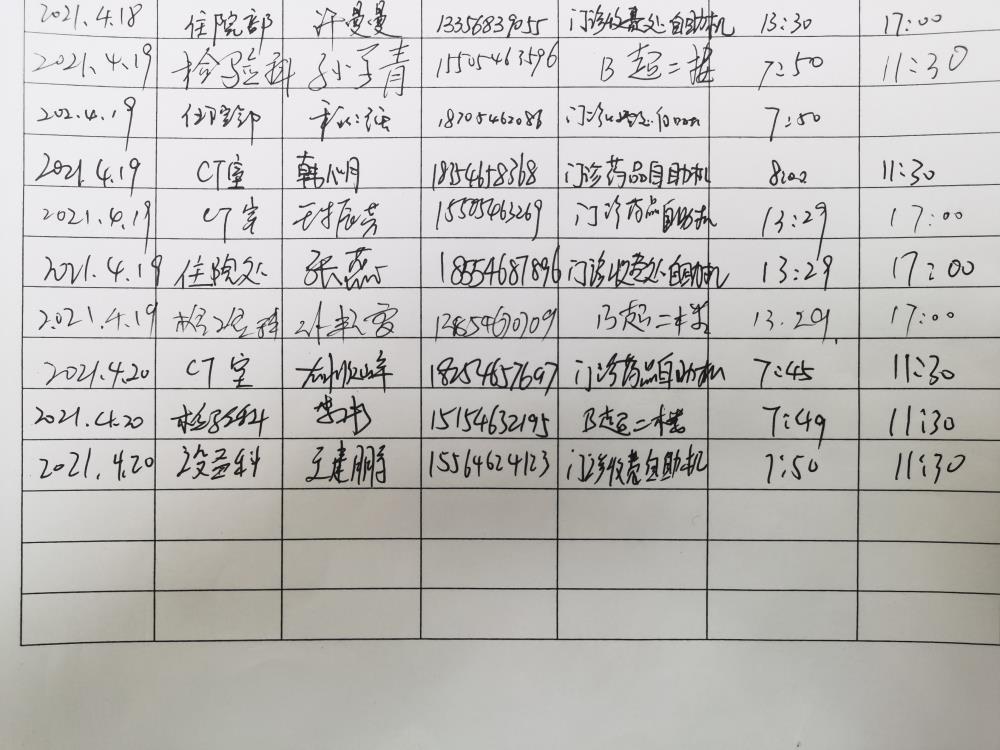 2021.4.18 住院部 许曼曼 13356839055 门诊收费处自助机 13:30 17:00
2021.4.19 检验科 孙子青 15505463596 B超二楼 7:50 11:30
202.4.19 住院部 18705462086 7:50
2021.4.19 CT室 韩心月 18354658368 门诊药品自助机 8:00 11:30
2021.4.19 CT室 15505463269 门诊药品自助机 13:29 17:00
2021.4.19 住院处 张燕 18554687896 门诊收费处自助机 13:29 17:00
2021.4.19 检验科 B超二楼 13.29 17:00
2021.4.20 CT室 18254657697 门诊药品自助机 7:45 11:30
2021.4.20 检验科 15154632195 B超二楼 7:49 11:30
2021.4.20 设备科 王建鹏 15564624123 门诊收费自助机 7:50 11:30